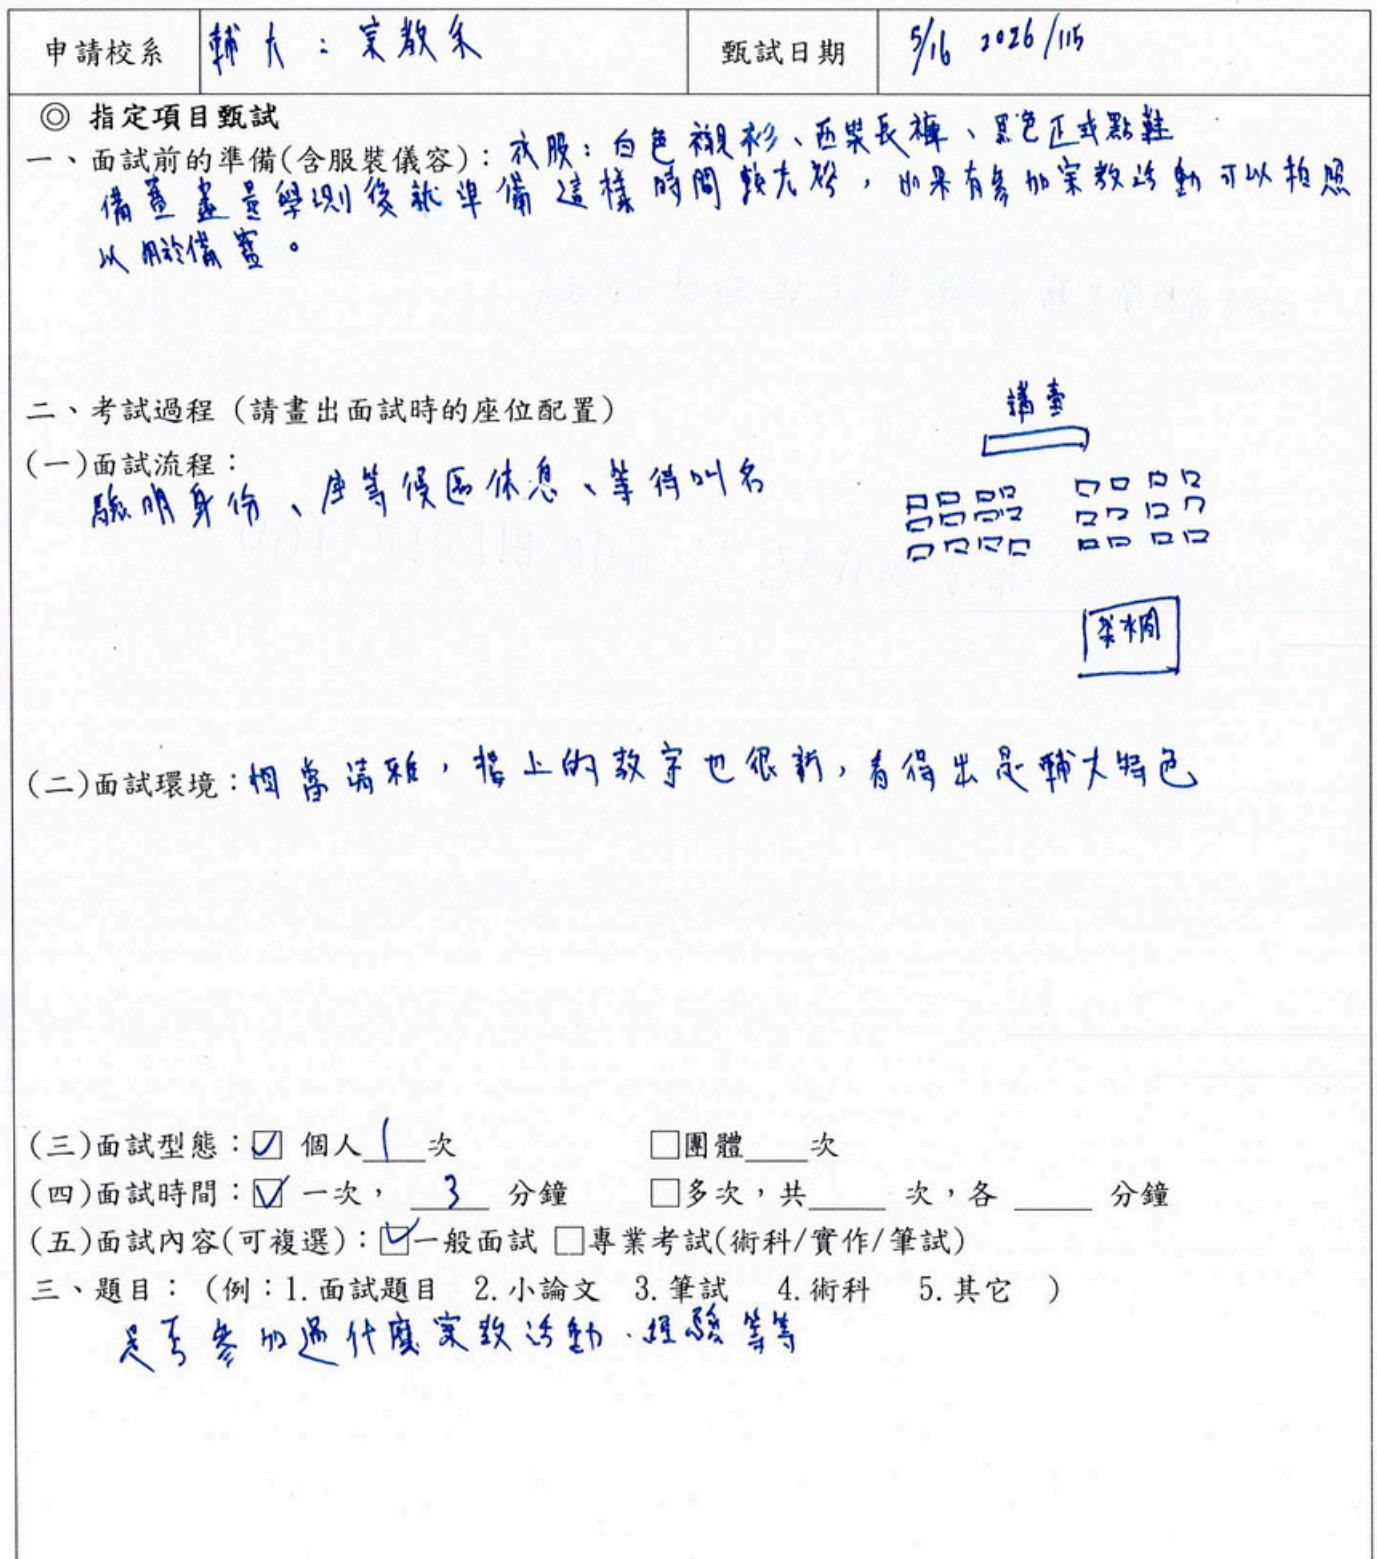 申請校系 輔大：宗教系 甄試日期 5/16 2026/115
◎ 指定項目甄試
一、面試前的準備(含服裝儀容)：衣服：白色襯衫、西裝長褲、黑色正式點鞋
備審盡量學測後就準備這樣時間較充裕，如果有參加宗教活動可以拍照
以用於備審。
二、考試過程（請畫出面試時的座位配置）
講臺
(一)面試流程：
驗明身份、座等候區休息、等待叫名
茶水間
(二)面試環境：相當清雅，牆上的數字也很新，看得出是輔大特色
(三)面試型態：☑ 個人 1 次 □團體____次
(四)面試時間：☑ 一次， 3 分鐘 □多次，共_____ 次，各 _____ 分鐘
(五)面試內容(可複選)：☑一般面試 □專業考試(術科/實作/筆試)
三、題目：（例：1.面試題目 2.小論文 3.筆試 4.術科 5.其它 ）
是否參加過什麼宗教活動、經驗等等